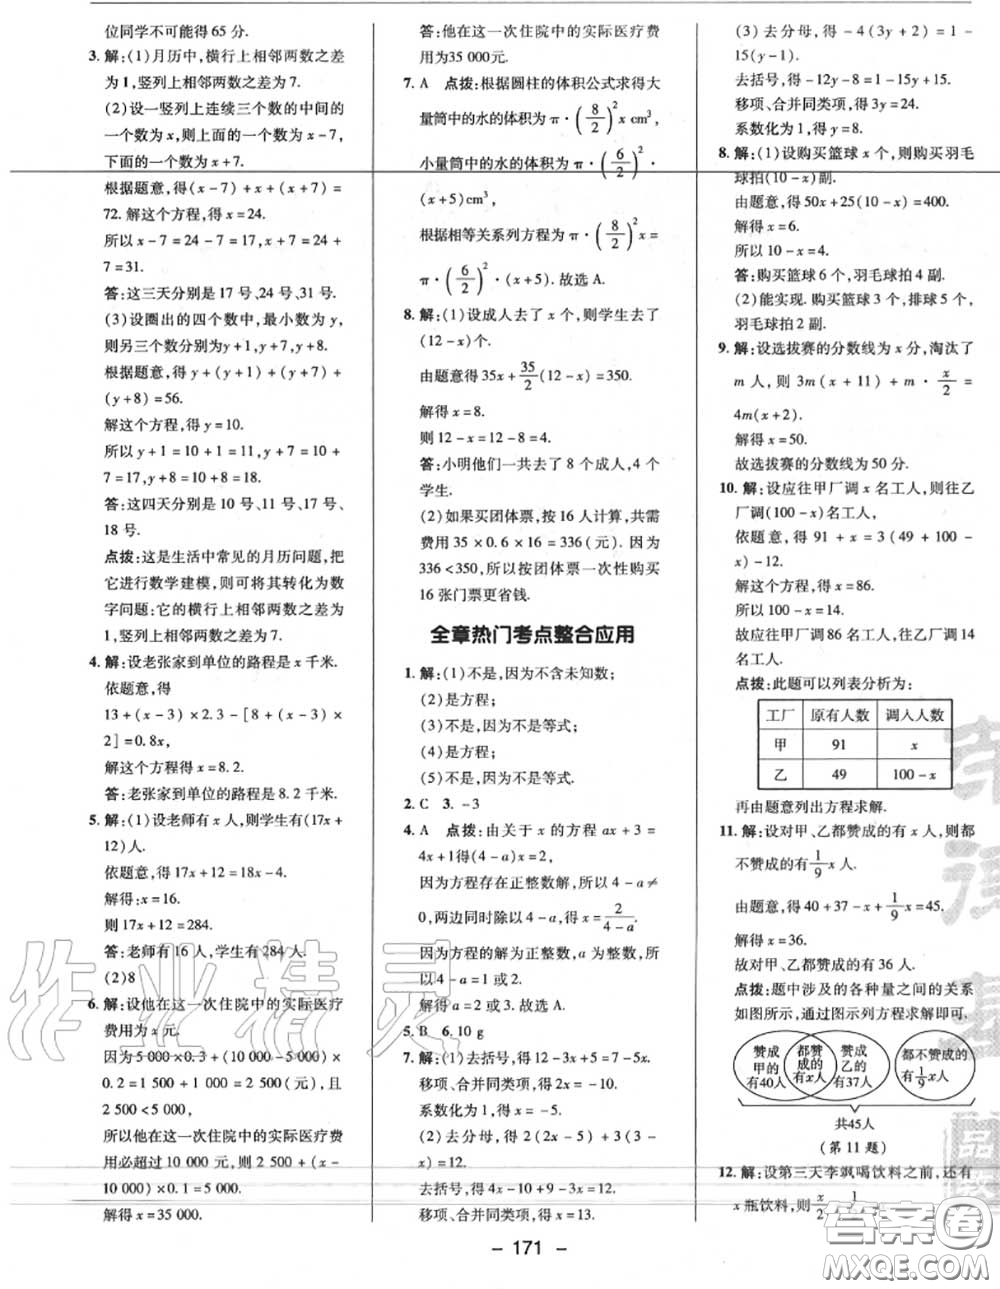 位同学不可能得 65 分.
3. 解:(1)月历中,横行上相邻两数之差
为1,竖列上相邻两数之差为 7.
(2)设一竖列上连续三个数的中间的
一个数为x,则上面的一个数为 x-7,
下面的一个数为 x+7.
根据题意,得(x-7)+x+(x+7)=
72. 解这个方程,得 x=24.
所以 x-7=24-7=17,x+7=24+
7=31.
答:这三天分别是 17 号,24 号,31 号.
(3)设圈出的四个数中,最小数为 y,
则另三个数分别为y+1,y+7,y+8.
根据题意,得 y+(y+1)+(y+7)+
(y+8)=56.
解这个方程,得 y=10.
所以 y+1=10+1=11,y+7=10+
7=17,y+8=10+8=18.
答:这四天分别是 10 号、11 号、17 号、
18 号.
点拨:这是生活中常见的月历问题,把
它进行数学建模,则可将其转化为数
字问题:它的横行上相邻两数之差为
1,竖列上相邻两数之差为 7.
4. 解:设老张家到单位的路程是 x 千米.
依题意,得
13+(x-3)×2.3-[8+(x-3)×
2]=0.8x,
解这个方程得 x=8.2.
答:老张家到单位的路程是 8.2 千米.
5. 解:(1)设老师有 x 人,则学生有(17x+
12)人.
依题意,得 17x+12=18x-4.
解得:x=16.
则 17x+12=284.
答:老师有 16 人,学生有 284 人.
(2)8
6. 解:设他在这一次住院中的实际医疗
费用为x 元.
因为5 000×0.3+(10 000-5 000)×
0.2=1 500+1 000=2 500(元),且
2 500<5 000,
所以他在这一次住院中的实际医疗费
用必超过 10 000 元,则 2 500+(x-
10 000)×0.1=5 000.
解得 x=35 000.
答:他在这一次住院中的实际医疗费
用为35 000元.
7. A 点拨:根据圆柱的体积公式求得大
量筒中的水的体积为 π·(8/2)²x cm³,
小量筒中的水的体积为 π·(6/2)²
·(x+5)cm³.
根据相等关系列方程为 π·(8/2)²x=
π·(6/2)²·(x+5). 故选 A.
8. 解:(1)设成人去了 x 个,则学生去了
(12-x)个.
由题意得 35x+35/2(12-x)=350.
解得 x=8.
则 12-x=12-8=4.
答:小明他们一共去了 8 个成人,4 个
学生.
(2)如果买团体票,按 16 人计算,共需
费用 35×0.6×16=336(元). 因为
336<350,所以按团体票一次性购买
16 张门票更省钱.
全章热门考点整合应用
1. 解:(1)不是,因为不含未知数;
(2)是方程;
(3)不是,因为不是等式;
(4)是方程;
(5)不是,因为不是等式.
2. C 3. -3
4. A 点拨:由关于 x 的方程 ax+3=
4x+1得(4-a)x=2,
因为方程存在正整数解,所以 4-a≠
0,两边同时除以 4-a,得 x=2/(4-a).
因为方程的解为正整数,a 为整数,所
以4-a=1或 2.
解得 a=2 或 3. 故选 A.
5. B 6. 10 g
7. 解:(1)去括号,得 12-3x+5=7-5x.
移项、合并同类项,得 2x=-10.
系数化为 1,得 x=-5.
(2)去分母,得 2(2x-5)+3(3-x)
=12.
去括号,得 4x-10+9-3x=12.
移项、合并同类项,得 x=13.
(3)去分母,得 -4(3y+2)=1-
15(y-1).
去括号,得 -12y-8=1-15y+15.
移项、合并同类项,得 3y=24.
系数化为 1,得 y=8.
8. 解:(1)设购买篮球 x 个,则购买羽毛
球拍(10-x)副.
由题意,得 50x+25(10-x)=400.
解得 x=6.
所以 10-x=4.
答:购买篮球 6 个,羽毛球拍 4 副.
(2)能实现. 购买篮球 3 个,排球 5 个,
羽毛球拍 2 副.
9. 解:设选拔赛的分数线为 x 分,淘汰了
m 人,则 3m(x+11)+m·x/2=
4m(x+2).
解得 x=50.
故选拔赛的分数线为 50 分.
10. 解:设应往甲厂调 x 名工人,则往乙
厂调(100-x)名工人,
依题意,得 91+x=3(49+100-
x)-12.
解这个方程,得 x=86.
所以 100-x=14.
故应往甲厂调 86 名工人,往乙厂调 14
名工人.
点拨:此题可以列表分析为:
工厂 原有人数 调入人数
甲 91 x
乙 49 100-x
再由题意列出方程求解.
11. 解:设对甲、乙都赞成的有 x 人,则都
不赞成的有1/9x 人.
由题意,得 40+37-x+1/9x=45.
解得 x=36.
故对甲、乙都赞成的有 36 人.
点拨:题中涉及的各种量之间的关系
如图所示,通过图示列方程求解即可.
赞成甲的有40人 都赞成的有x人 赞成乙的有37人 都不赞成的有1/9x人
共45人
(第 11 题)
12. 解:设第三天李飒喝饮料之前,还有
x 瓶饮料,则x/2-1/
- 171 -
作业精灵
答案圈
MXQE.COM